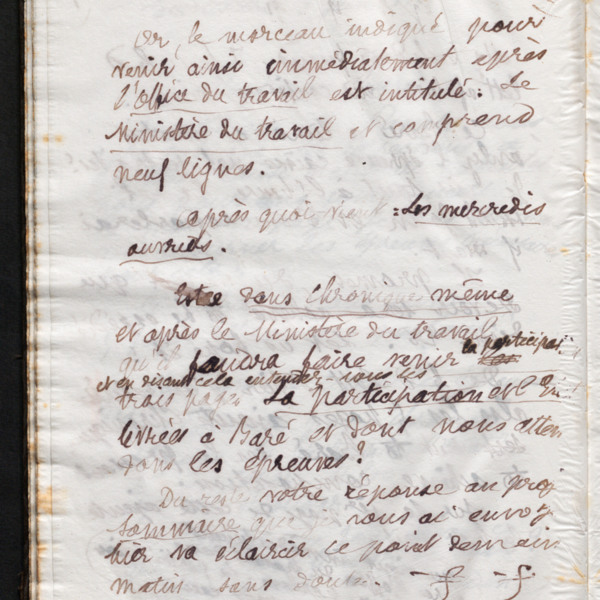 Or, le morceau indiqué pour
venir ainsi immédiatement après
l'Office du travail est intitulé : Le
Ministère du travail et comprend
neuf lignes.
Après quoi vient : Les mercredis
ouvriers.
Est-ce dans Chronique même
et après le Ministère du travail
qu'il faudra faire venir la participa
et en disant cela entendez-vous les
trois pages La participation et
livrées à Baré et dont nous atten
dons les épreuves ?
Du reste votre réponse au proj
sommaire que je vous ai envoyé
hier va éclaircir ce point demain
matin sans doute.